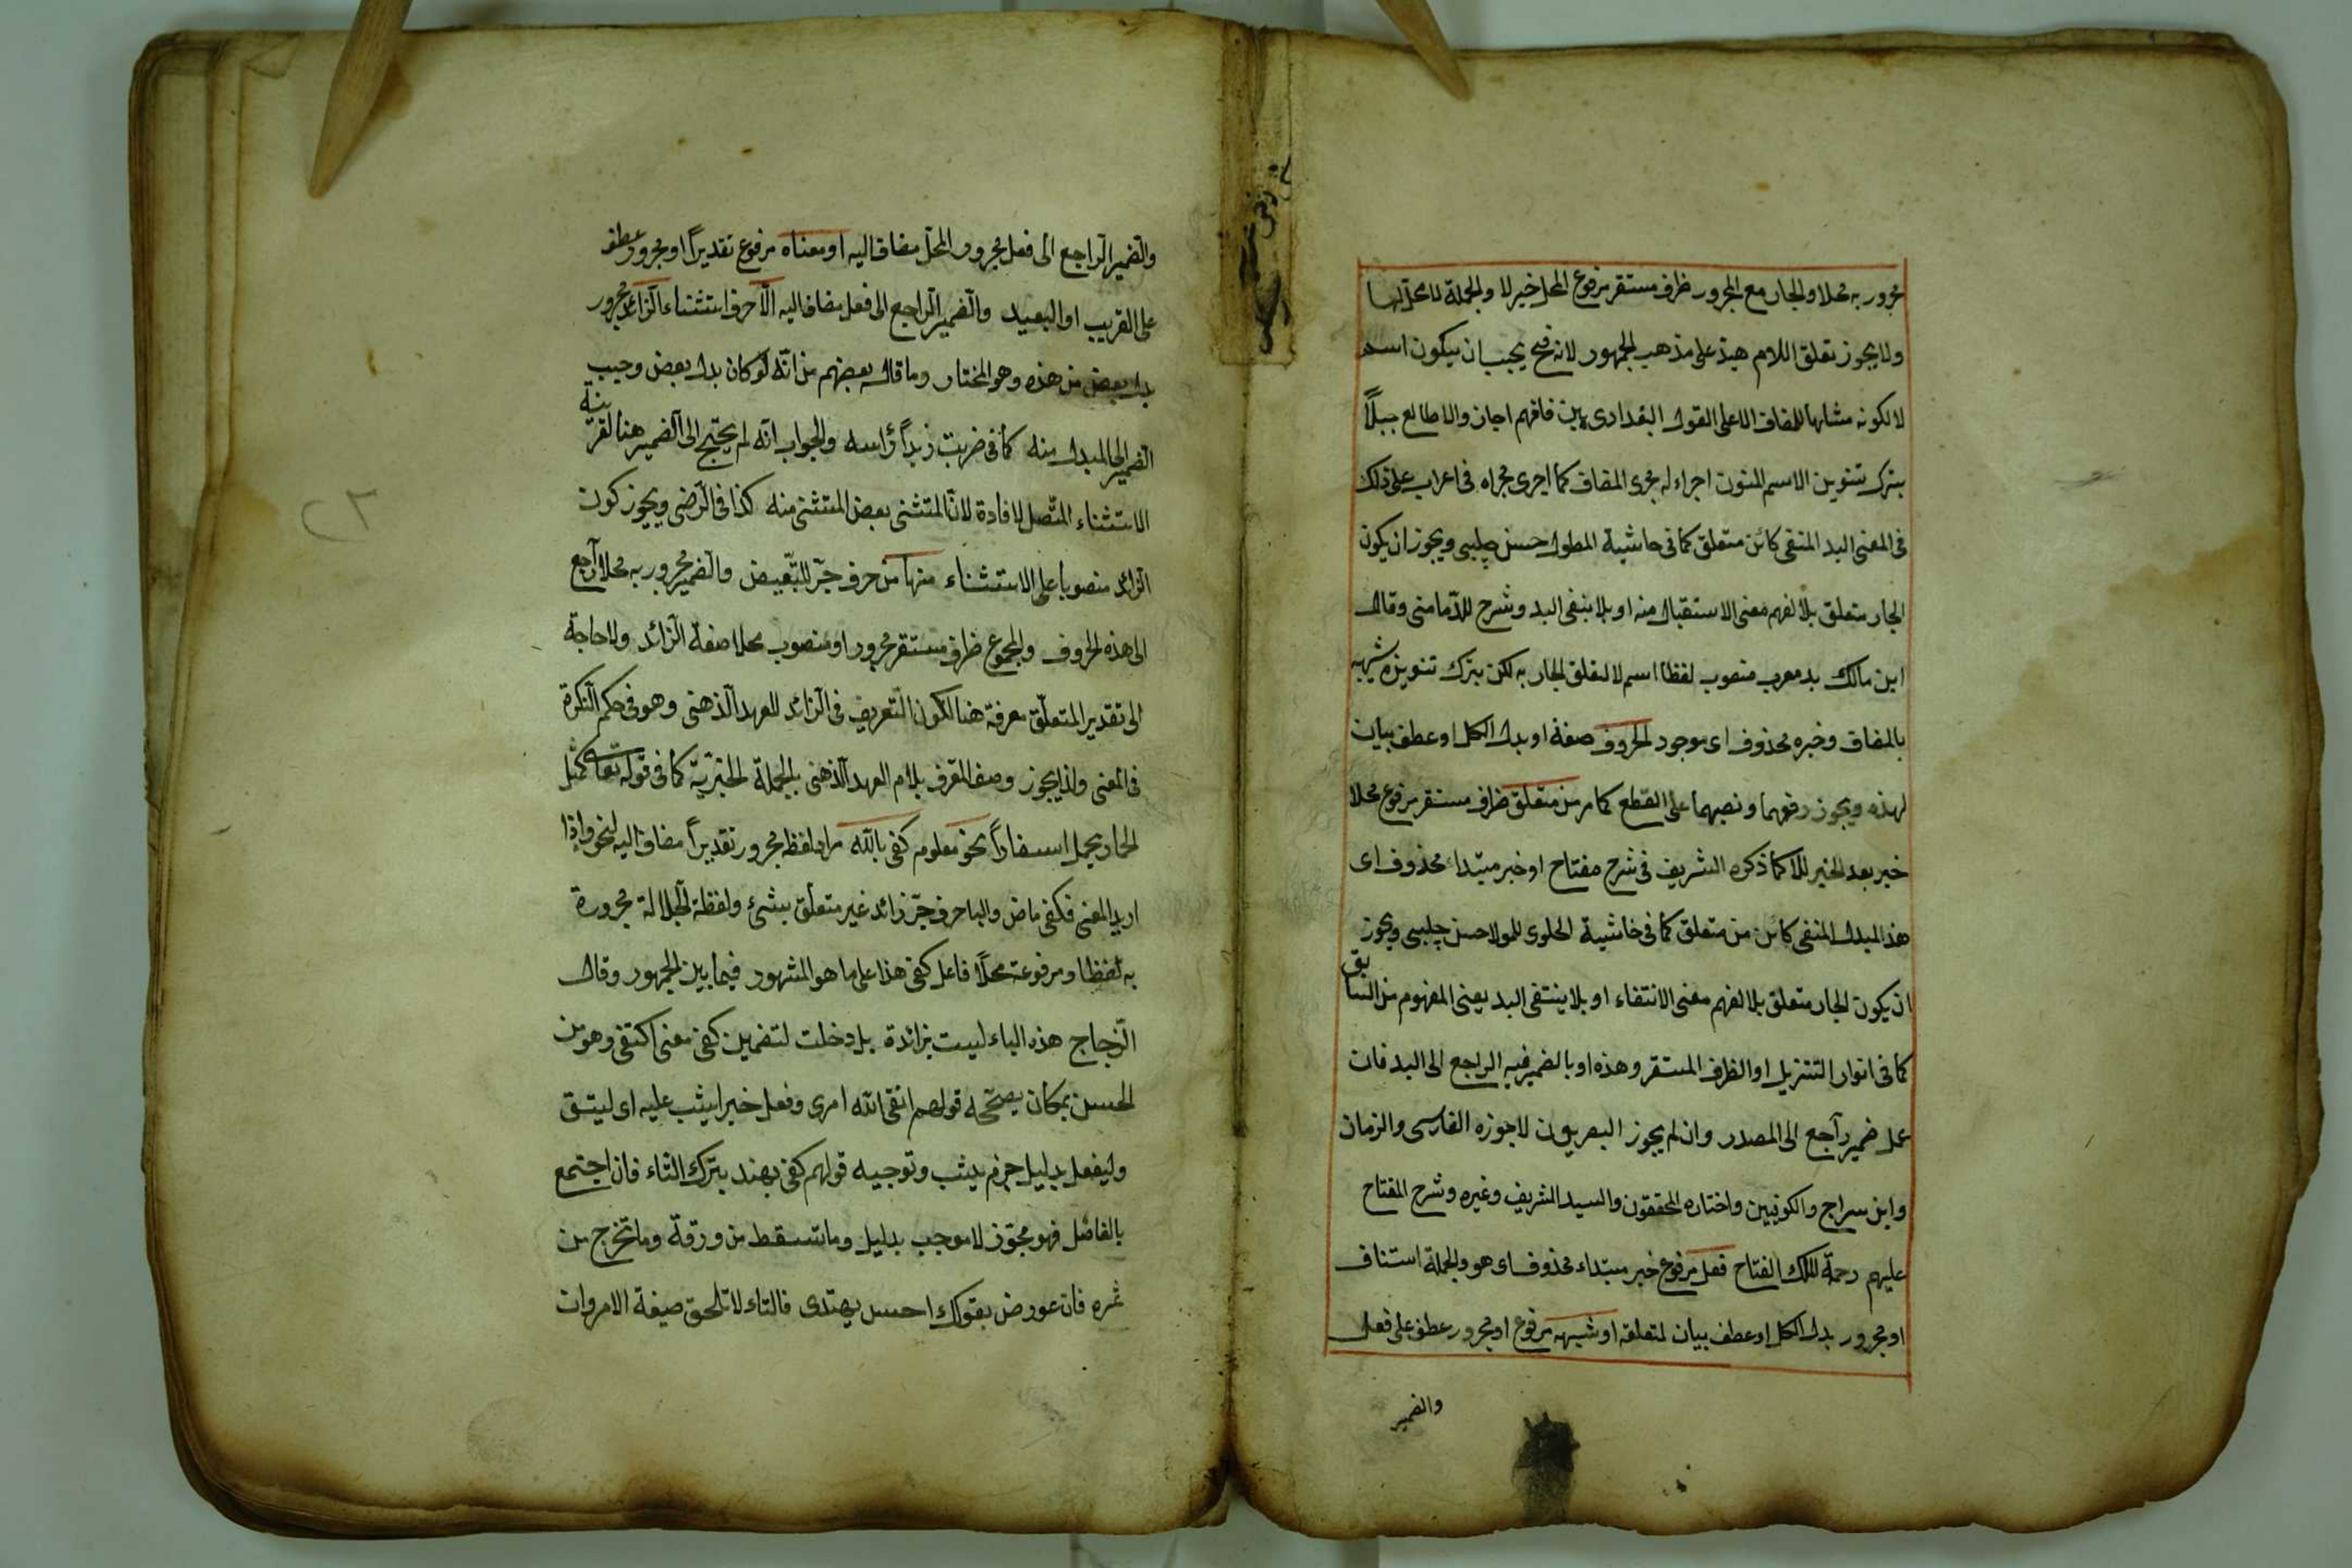 مجرور به محلا والجار مع المجرور ظرف مستقر مرفوع المحل خبر لا والجملة لا محل لها
ولا يجوز تعلق اللام هبذ على مذهب الجمهور لانه فح يجب ان يكون اسم
لا لكونه مشابها للمضاف الا على القول البغدادى يين فافهم اجازوا لا طالع جبلاً
بترك تنوين الاسم المنون اجراء له مجرى المضاف كما اجرى مجراه فى اعراب على ذلك
فى المغنى البد المنفى كائن متعلق كما فى حاشية المطول حسن چلبى ويجوز ان يكون
الجار متعلق بلا لفهم معنى الاستقبال منه او بلا ينفى البد وشرح للدمامنى وقال
ابن مالك بد معرب منصوب لفظا اسم لا لتعلق الجار به لكن بترك تنوينه شبه
بالمضاف وخبره محذوف اى موجود الحروف صفة او بدل الكل او عطف بيان
لهذه ويجوز رفعهما ونصبهما على القطع كما مر من متعلق ظرف مستقر مرفوع محلا
خبر بعد الخبر للا كما ذكره الشريف فى شرح مفتاح او خبر مبتداء محذوف اى
هذا البدل المنفى كائن من متعلق كما فى حاشية الحلوى للمولا حسن چلبى ويجوز
ان يكون الجار متعلق بلا لفهم معنى الانتفاء او بلا ينتفى البد يعنى المفهوم من السابق
كما فى انوار التنزيل او الظرف المستقر وهذه او بالضمير فيه الراجع الى البد فان
عمل ضمير راجع الى المصدر وان لم يجوز البصريون لا جوزه الفارسى والزمان
وابن سراج والكوفيين واختاره المحققون والسيد الشريف وغيره وشرح المفتاح
عليهم رحمة الملك الفتاح فعل مرفوع خبر مبتداء محذوف اى هو والجملة استناف
او مجرور بدل الكل او عطف بيان لمتعلقه او شبهه مرفوع او مجرور عطف على فعل
والضمير
والضمير الراجع الى فعل مجرور المحل مضاف اليه او معناه مرفوع تقديراً او مجرور عطف
على القريب او البعيد والضمير الراجع الى فعل مضاف اليه الا حرف استثناء الزائد مجرور
بدل بعض من هذه وهو المختار وما قال بعضهم من انه لو كان بدل بعض وجب
الضمير الى المبدل منه كما فى ضربت زيداً رأسه والجواب انه لم يحتج الى الضمير هنا لقرينة
الاستثناء المتصل لافادة لان المتثنى بعض المتثنى منه كذا فى الرضى ويجوز كون
الزائد منصوبا على الاستثناء منها من حرف جر للتبعيض والضمير مجرور به محلا راجع
الى هذه الحروف والمجموع ظرف مستقر مجرور او منصوب محلا صفة الزائد ولا حاجة
الى تقدير المتعلق معرفة هنا لكون التعريف فى الزائد للعهد الذهنى وهو فى حكم النكرة
فى المعنى ولذا يجوز وصف المعرف بلام العهد الذهنى بالجملة الخبرية كما فى قوله تعالى كمثل
الحمار يحمل اسفاراً نحو معلوم كفى بالله مراد لفظه مجرور تقديراً مضاف اليه لنحو واذا
اريد المعنى فكفى ماض والبا حرف جر زائد غير متعلق بشئ ولفظة الجلالة مجرورة
به لفظا ومرفوعة محلاً فاعل كفى هذا على ما هو المشهور فيما بين الجمهور وقال
الزجاج هذه الباء ليست بزائدة بل دخلت لتضمين كفى معنى اكتفى وهو من
الحسن بمكان يصححه قولهم اتقى الله امرى وفعل خيرا يثب عليه اى ليتق
وليفعل بدليل جزم يثب وتوجيه قولهم كفى بهند بترك التاء فان اجتمع
بالفاصل فهو مجوز لا موجب بدليل وما تسقط من ورقة وما تخرج من
ثمره فان عورض بقولك احسن يهتدى فالتاء لا تلحق صيغة الامر وان